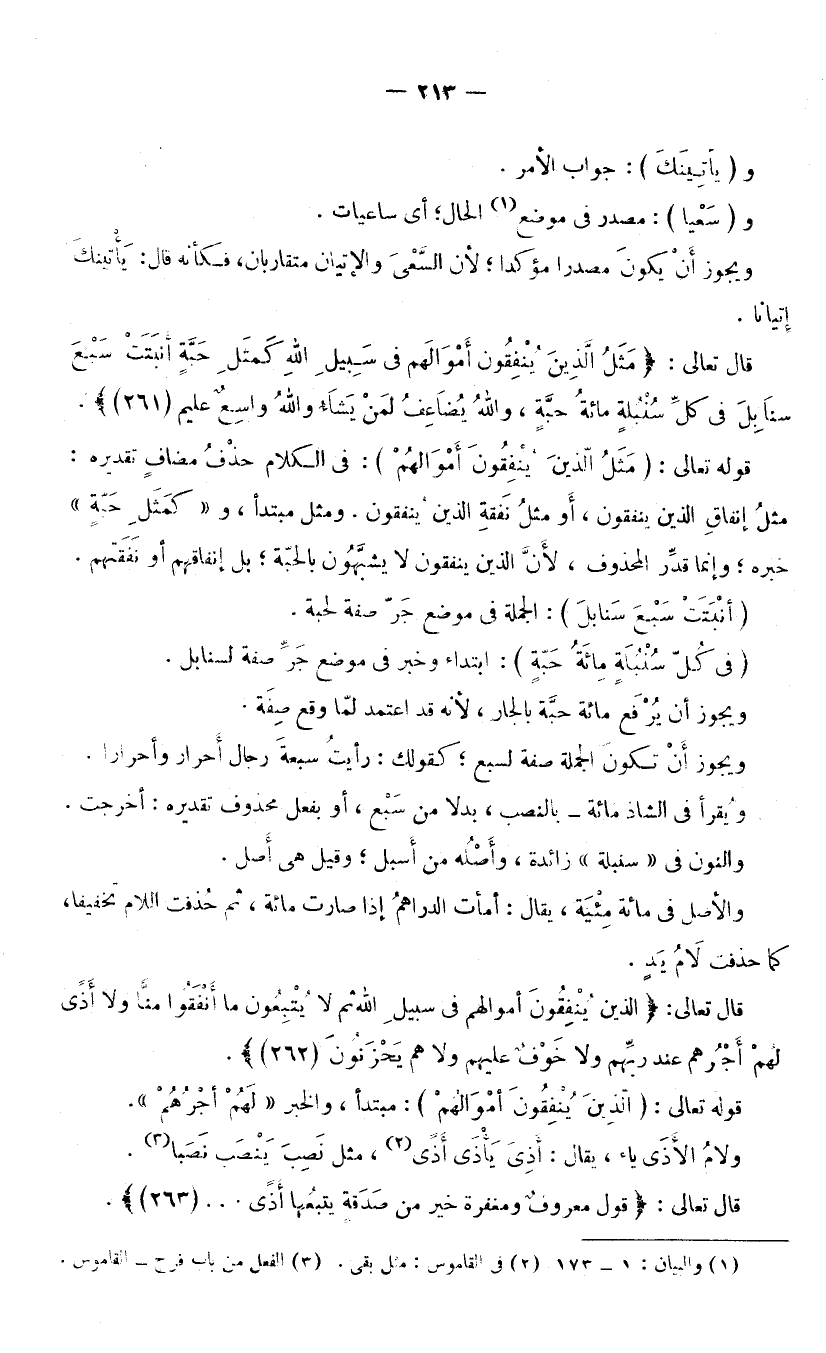 — ٢١٣ —
و ( يَأْتِينَكَ ) : جواب الأمر .
و ( سَعْيا ) : مصدر فى موضع(١) الحال؛ أى ساعيات .
ويجوز أَنْ يكونَ مصدرا مؤكدا ؛ لأن السَّعْىَ والإتيان متقاربان، فكأنه قال: يَأْتينكَ
إتيانا .
قال تعالى : ﴿ مَثَلُ الَّذِينَ يُنْفِقُون أَمْوَالَهم فى سَبِيلِ اللهِ كَمَثَلِ حَبَّةٍ أنْبَتَتْ سَبْعَ
سنَابِلَ فى كلِّ سُنْبُلةٍ مائةُ حبَّةٍ ، واللهُ يُضَاعِفُ لمَنْ يَشَاء واللهُ واسِعٌ عليم (٢٦١) ﴾ .
قوله تعالى : ( مَثَلُ الّذينَ يُنْفِقُونَ أَمْوَالَهُمْ ) : فى الكلام حذْفُ مضافٍ تقديره :
مثلُ إنفاقِ الذين ينفقون ، أو مثلُ نَفقةِ الذين يُنفقون . ومثل مبتدأ ، و « كَمَثَلِ حَبّةٍ »
خبره ؛ وإنما قدِّر المحذوف ، لأَنَّ الذين ينفقون لا يشبَّهُون بالحبّة ؛ بل إنفاقهم أو نَفَقَتهم .
( أنْبَتَتْ سَبْعَ سَنابلَ ) : الجملة فى موضع جَرّ صفة لحبة .
( فى كُلّ سُنْبُلَةٍ مِائَةُ حَبّةٍ ) : ابتداء وخبر فى موضع جَرٍّ صفة لسنابل .
ويجوز أن يُرْفَع مائة حبَّة بالجار ، لأنه قد اعتمد لمّا وقع صِفَة .
ويجوز أَنْ تكونَ الجملة صفة لسبع ؛ كقولك : رأيتُ سبعةَ رجال أَحرار وأحرارا .
ويُقرأ فى الشاذ مائة – بالنصب ، بدلا من سَبْع ، أو بفعل محذوف تقديره : أخرجت .
والنون فى « سنبلة » زائدة ، وأَصْلُه من أَسبل ؛ وقيل هى أَصل .
والأصل فى مائة مِئْيَة ، يقال : أمأت الدراهمُ إذا صارت مائة ، ثم حُذفت اللام تخفيفا،
كما حذفت لَامُ يَدٍ .
قال تعالى: ﴿ الذين يُنْفِقُونَ أموالهم فى سبيلِ الله ثم لا يُتْبِعُون ما أَنْفَقُوا منًّا ولا أَذًى
لهُمْ أَجْرُهم عند ربِّهم ولا خَوْفٌ عليهم ولا هم يَحْزَنُونَ (٢٦٢) ﴾ .
قوله تعالى : ( الّذِينَ يُنْفِقُونَ أمْوَالَهُمْ ) : مبتدأ ، والخبر « لَهُمْ أجْرُهُمْ ».
ولامُ الأَذَى ياء ، يقال : أَذِىَ يَأْذَى أَذًى(٢) ، مثل نَصِبَ يَنْصَب نَصَبا(٣) .
قال تعالى : ﴿ قول معروفٌ ومغفرة خير من صَدَقةٍ يتبعُها أَذًى . . . (٢٦٣) ﴾ .
(١) والبيان : ١ – ١٧٣ (٢) فى القاموس : مثل بقى . (٣) الفعل من باب فرح – القاموس .